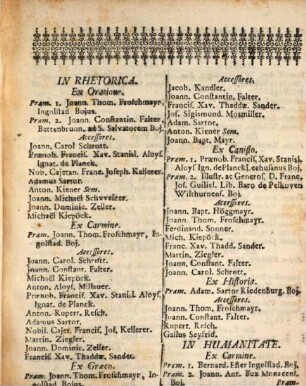 IN RHETORICA.
Ex Oratione.
Præm. 1. Joann. Thom. Froschmayr,
Ingolstad Bojus.
Præm. 2. Joann. Constantin. Falter,
Bettenbrunn. ad S. Salvatorem Boj.
Accessores.
Joann. Carol Schrott.
Prænob. Francisc. Xav. Stanisl. Aloys.
Ignat. de Planck.
Nob. Cajetan. Franc. Joseph. Kellerer.
Adamus Sartor.
Anton. Kiener Sem.
Joann. Michaël Schweeser.
Joann. Dominic. Zeller.
Michaël Kiepöck.
Ex Carmine.
Præm. Joann. Thom. Froschmayr, In-
golstad. Boj.
Accessores.
Joann. Carol. Schrott.
Joann. Constant. Falter.
Michaël Kiepöck.
Anton. Aloys.
Prænob. Francisc. Xav. Stanisl. Aloys.
Ignat. de Planck.
Anton. Rupert. Reisch.
Adamus Sartor.
Nobil. Cajet. Francisc. Jos. Kellerer.
Martin. Ziegler.
Joann. Dominic. Zeller.
Francisc. Xav. Thaddæ. Sander.
Ex Græco.
Præm. Joann. Thom. Froschmayr, In-
golstad. Bojus.
Accessores.
Jacob. Kandler.
Joann. Constantin. Falter.
Francisc. Xav. Thaddæ. Sander.
Jos. Sigismund. Mosmiller.
Adam. Sartor.
Anton. Kiener Sem.
Joann. Bapt. Mayr.
Ex Canisio.
Præm. 1. Prænob. Francisc. Xav. Stanisl.
Aloys. Ign. de Planck Leehusinus Boj.
Præm. 2. Illustr. ac Generos. D. Franc.
Jos. Guiliel. Lib. Baro de Pelkoven
Wilthurnens. Boj.
Accessores.
Joann. Bapt. Höggmayr.
Joann. Thom. Froschmayr.
Ferdinand. Sonner.
Mich. Kiepöck.
Franc. Xav. Thadd. Sander.
Martin. Ziegler.
Joann. Constant. Falter.
Joann. Carol. Schrott.
Ex Historia.
Præm. Adam. Sartor Riedenburg. Boj.
Accessores.
Joann. Thom. Froschmayr.
Joann. Constant. Falter.
Rupert. Reisch.
Gallus Seyfrid.
IN HUMANITATE.
Ex Carmine.
Præm. 1. Bernard. Ester Ingolstad. Boj.
Præm. 2. Joann. Ant. Eux
Boj.
Præm.